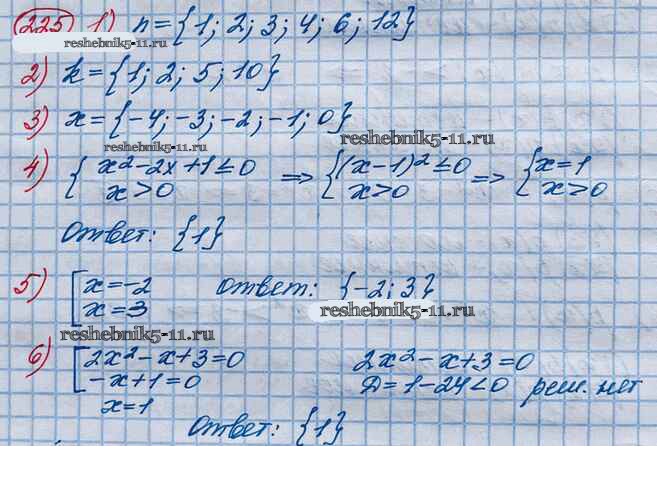 225 1) n = {1; 2; 3; 4; 6; 12}
reshebnik5-11.ru
2) k = {1; 2; 5; 10}
reshebnik5-11.ru
3) x = {-4; -3; -2; -1; 0}
reshebnik5-11.ru
reshebnik5-11.ru
4) { x² - 2x + 1 ≤ 0 => { (x-1)² ≤ 0 => { x = 1
x > 0 x > 0 x > 0
Ответ: {1}
5) [ x = -2 Ответ: {-2; 3}
x = 3
reshebnik5-11.ru
reshebnik5-11.ru
6) [ 2x² - x + 3 = 0 2x² - x + 3 = 0
-x + 1 = 0 D = 1 - 24 < 0 реш. нет
x = 1
Ответ: {1}